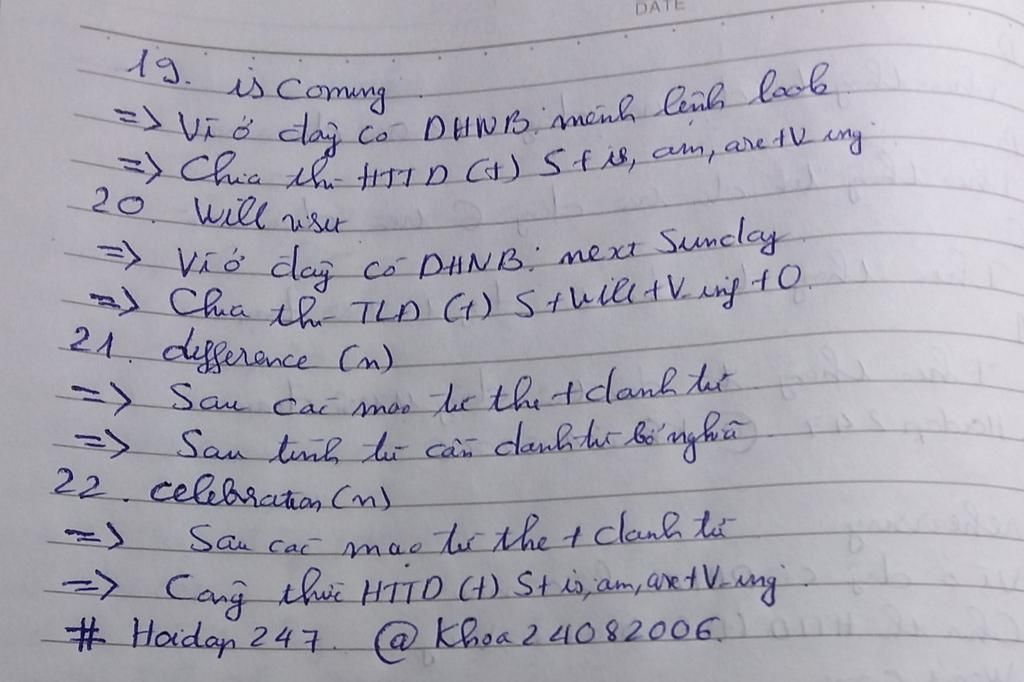 DATE
19. is Coming
=> Vì ở đây có DHNB: mệnh lệnh look
=> Chia thì HTTD (+) S + is, am, are + V ing
20. Will visit
=> Vì ở đây có DHNB: next Sunday
=> Chia thì TLD (+) S + Will + V ing + O.
21. difference (n)
=> Sau các mạo từ the + danh từ
=> Sau tính từ cần danh từ bổ nghĩa
22. celebration (n)
=> Sau các mạo từ the + danh từ
=> Công thức HTTD (+) S + is, am, are + V-ing
# Hoidap 247. @ Khoa 24082006